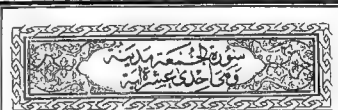 سورة الجمعة مدنية
وهي احدى عشرة اية